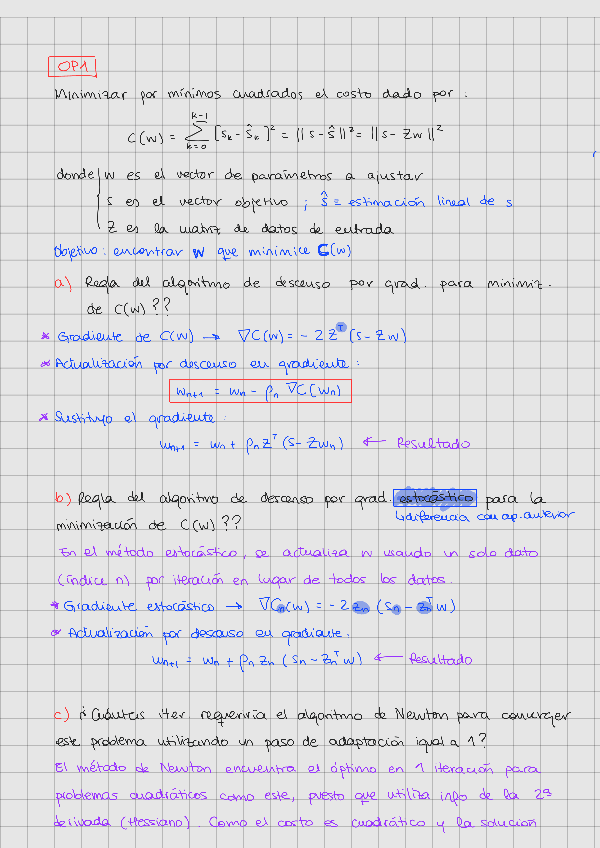 OP1
Minimizar por mínimos cuadrados el costo dado por :
C(w) = Σ_{k=0}^{k-1} [s_k - ŝ_k]² = || s - ŝ ||² = || s - Zw ||²
donde w es el vector de parámetros a ajustar
s es el vector objetivo ; ŝ = estimación lineal de s
Z es la matriz de datos de entrada
Objetivo : encontrar w que minimice C(w)
a) Regla del algoritmo de descenso por grad. para minimiz.
de C(w) ??
* Gradiente de C(w) → ∇C(w) = - 2 Z^T (s - Zw)
* Actualización por descenso en gradiente :
w_{n+1} = w_n - ρ_n ∇C(w_n)
* Sustituyo el gradiente :
w_{n+1} = w_n + ρ_n Z^T (s - Zw_n) ← Resultado
b) Regla del algoritmo de descenso por grad. estocástico para la
minimización de C(w) ??
↳ diferencia con ap. anterior
En el método estocástico, se actualiza w usando un solo dato
(índice n) por iteración en lugar de todos los datos.
* Gradiente estocástico → ∇C_n(w) = - 2 z_n (s_n - z_n^T w)
* Actualización por descenso en gradiente.
w_{n+1} = w_n + ρ_n z_n (s_n - z_n^T w) ← Resultado
c) ¿Cuántas iter requeriría el algoritmo de Newton para converger
este problema utilizando un paso de adaptación igual a 1?
El método de Newton encuentra el óptimo en 1 iteración para
problemas cuadráticos como este, puesto que utiliza info de la 2ª
derivada (Hessiano). Como el costo es cuadrático y la solución